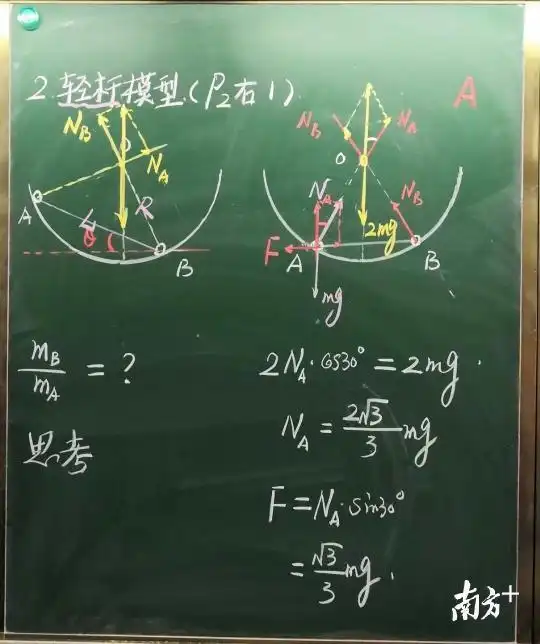 2. 轻杆模型(P₂右1)
A
N_B
N_A
R
L
θ
A
B
N_B
N_A
O
N_A
N_B
2mg
F
A
B
mg
m_B/m_A = ?
思考
2N_A·cos30° = 2mg.
N_A = 2√3/3 mg
F = N_A·sin30°
= √3/3 mg.
南方+